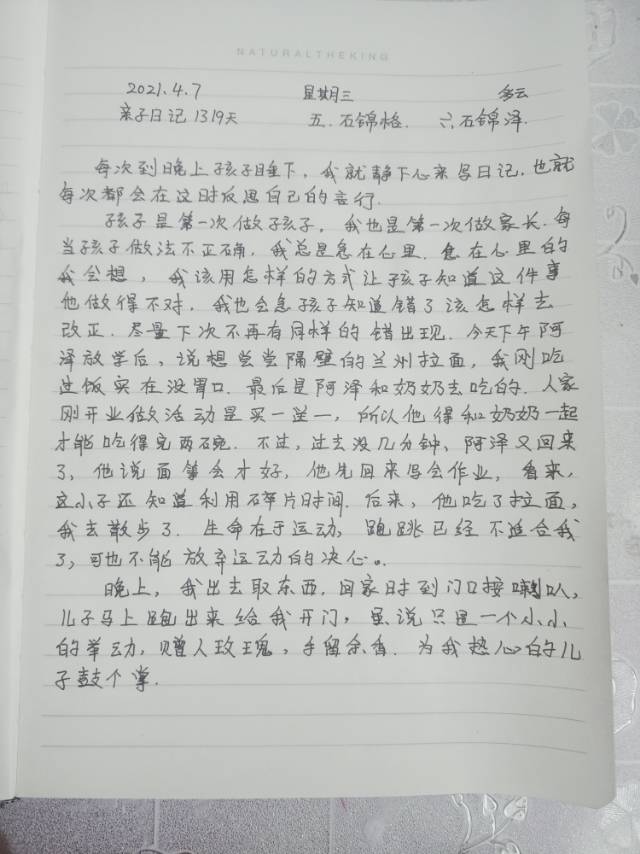 NATURALTHEKING
2021.4.7 星期三 多云
亲子日记1319天 五.石锦格. 六石锦泽.
每次到晚上孩子睡下，我就静下心来写日记.也就
每次都会在这时反思自己的言行.
孩子是第一次做孩子，我也是第一次做家长.每
当孩子做法不正确，我总是急在心里.急在心里的
我会想，我该用怎样的方式让孩子知道这件事
他做得不对.我也会急孩子知道错了该怎样去
改正.尽量下次不再有同样的错出现.今天下午阿
泽放学后，说想尝尝隔壁的兰州拉面，我刚吃
过饭实在没胃口.最后是阿泽和奶奶去吃的.人家
刚开业做活动是买一送一，所以他得和奶奶一起
才能吃得完两碗.不过，过去没几分钟、阿泽又回来
了，他说面等会才好，他先回来写会作业，看来，
这小子还知道利用碎片时间.后来，他吃了拉面，
我去散步了.生命在于运动，跑跳已经不适合我
了，可也不能放弃运动的决心。.
晚上，我出去取东西.回家时到门口按喇叭，
儿子马上跑出来给我开门，虽说只是一个小小
的举动，赠人玫瑰，手留余香.为我热心的儿
子鼓个掌.